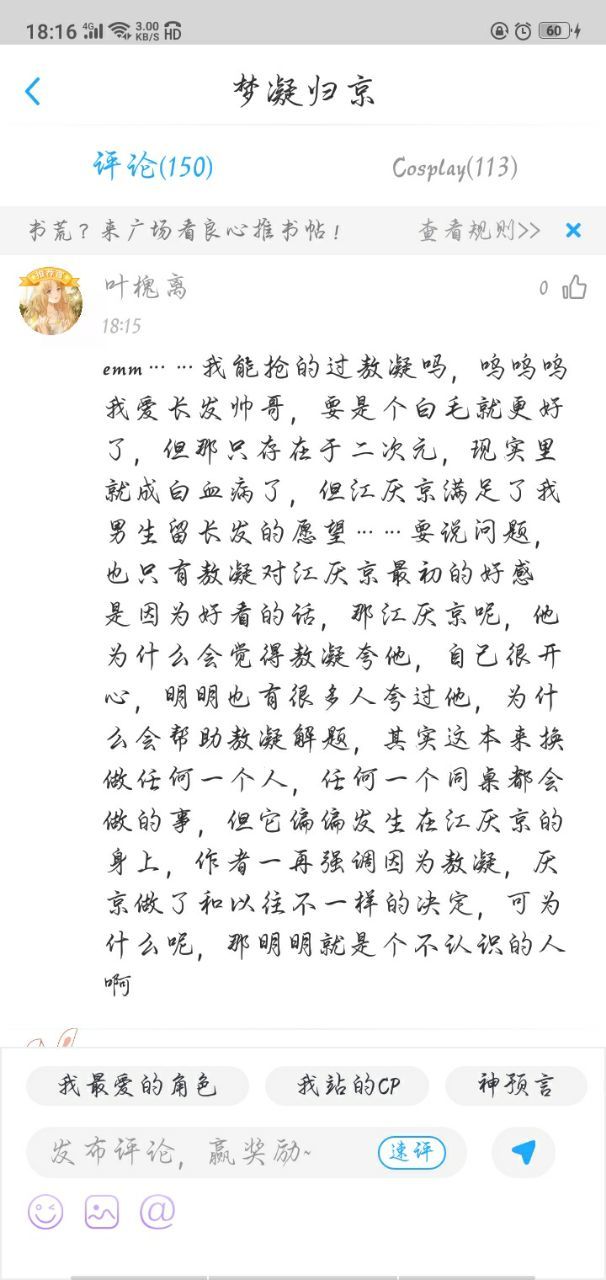 18:16 4G 3.00 KB/S HD 60
梦凝归京
评论(150) Cosplay(113)
书荒？来广场看良心推书帖！ 查看规则>>
叶槐离 0
18:15
emm……我能抢的过敖凝吗，呜呜呜
我爱长发帅哥，要是个白毛就更好
了，但那只存在于二次元，现实里
就成白血病了，但江厌京满足了我
男生留长发的愿望……要说问题，
也只有敖凝对江厌京最初的好感
是因为好看的话，那江厌京呢，他
为什么会觉得敖凝夸他，自己很开
心，明明也有很多人夸过他，为什
么会帮助敖凝解题，其实这本来换
做任何一个人，任何一个同桌都会
做的事，但它偏偏发生在江厌京的
身上，作者一再强调因为敖凝，厌
京做了和以往不一样的决定，可为
什么呢，那明明就是个不认识的人
啊
我最爱的角色 我站的CP 神预言
发布评论，赢奖励~ 速评
@